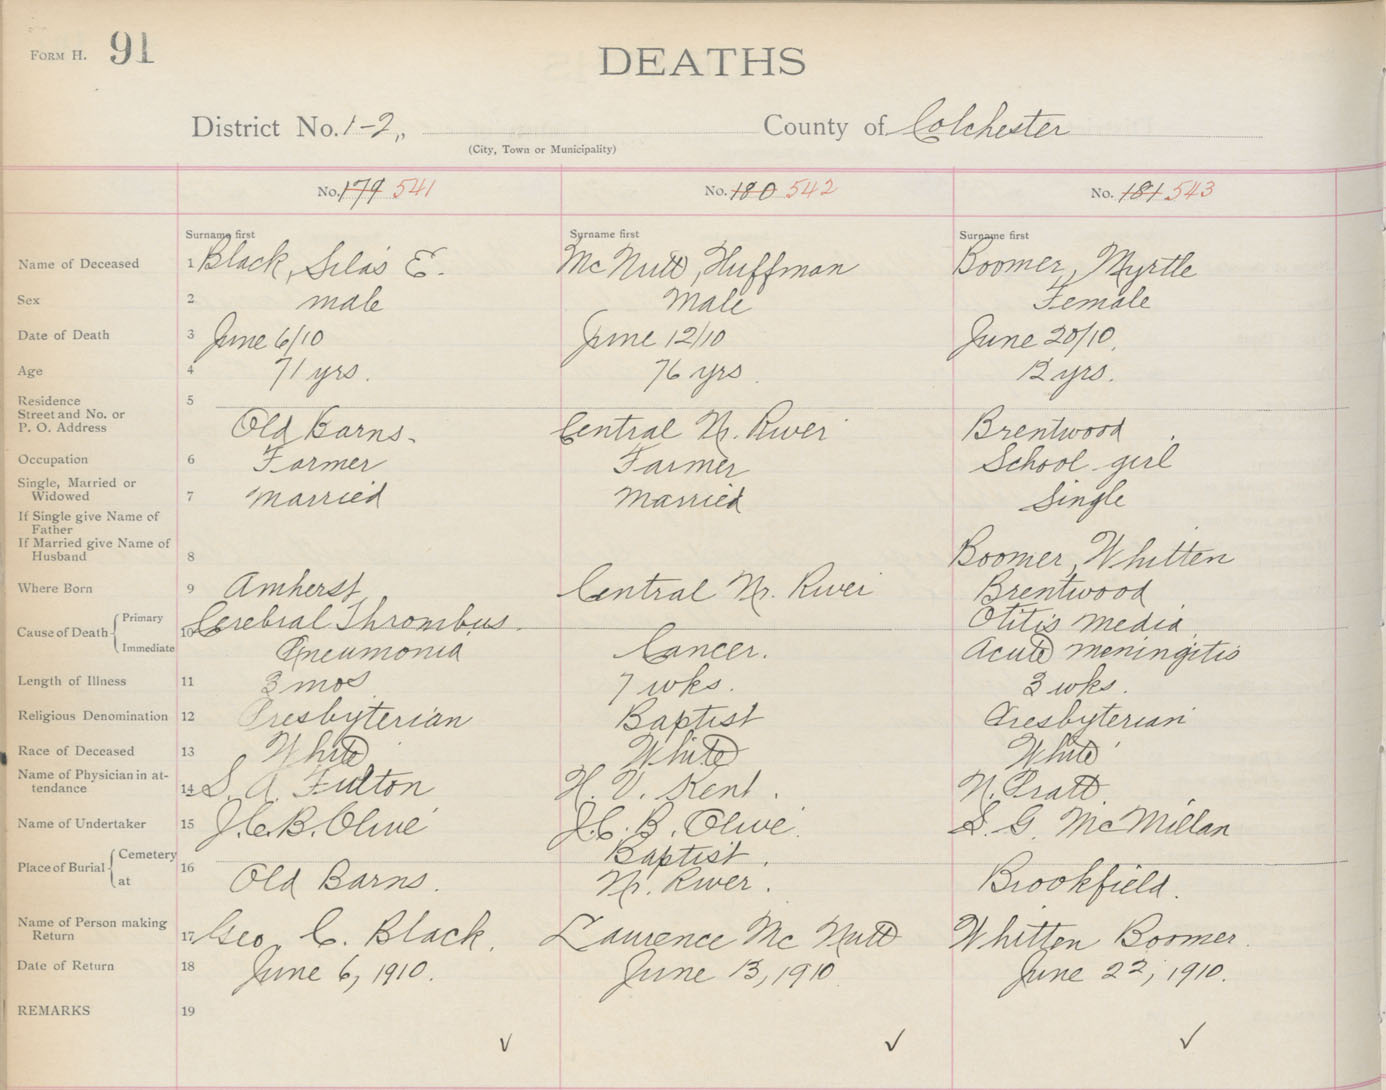 FORM H. 91
DEATHS
District No. 1-2,, County of Colchester
(City, Town or Municipality)
No. 179 541 No. 180 542 No. 181 543
Surname first Surname first Surname first
Name of Deceased 1 Black, Silas E. McNutt, Huffman Boomer, Myrtle
Sex 2 male Male Female
Date of Death 3 June 6/10 June 12/10 June 20/10.
Age 4 71 yrs. 76 yrs. 12 yrs.
Residence 5
Street and No. or
P. O. Address Old Barns. Central N. River Brentwood.
Occupation 6 Farmer Farmer School girl
Single, Married or
Widowed 7 married married Single
If Single give Name of
Father
If Married give Name of
Husband 8 Boomer, Whitten
Where Born 9 Amherst Central N. River Brentwood
Cause of Death Primary 10 Cerebral Thrombus. Otitis media
Immediate Pneumonia Cancer. Acute meningitis
Length of Illness 11 3 mos 7 wks. 3 wks.
Religious Denomination 12 Presbyterian Baptist Presbyterian
Race of Deceased 13 White White White
Name of Physician in at-
tendance 14 S. A. Fulton H. V. Kent. N. Pratt
Name of Undertaker 15 J.C.B. Olive J.C.B. Olive. S. G. McMillan
Place of Burial Cemetery 16 Baptist.
at Old Barns. N. River. Brookfield.
Name of Person making
Return 17 Geo. C. Black. Laurence McNutt Whitten Boomer.
Date of Return 18 June 6, 1910. June 13, 1910 June 22, 1910.
REMARKS 19